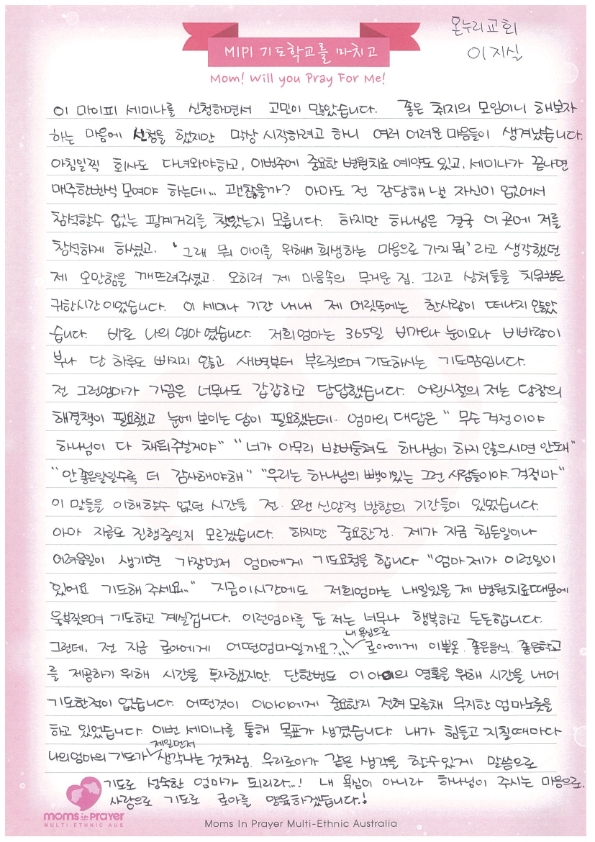 온누리교회
이지실
MIPI 기도학교를 마치고
Mom! Will you Pray For Me!
이 마이피 세미나를 신청하면서 고민이 많았습니다. 좋은 취지의 모임이니 해보자
하는 마음에 신청을 했지만 막상 시작하려고 하니 여러 어려운 마음들이 생겨났습니다.
아침일찍 회사도 다녀와야하고, 이번주에 중요한 병원치료 예약도 있고, 세미나가 끝나면
매주한번씩 모여야 하는데... 괜찮을까? 아마도 전 감당해 낼 자신이 없어서
참석할수 없는 핑계거리를 찾았는지 모릅니다. 하지만 하나님은 결국 이 곳에 저를
참석하게 하셨고, '그래 뭐 아이를 위해서 희생하는 마음으로 가지 뭐' 라고 생각했던
제 오만함을 깨뜨려주셨고. 오히려 제 마음속의 무거운 짐. 그리고 상처들을 치유받은
귀한시간 이었습니다. 이 세미나 기간 내내 제 머릿속에는 한사람이 떠나지 않았
습니다. 바로 나의 엄마 였습니다. 저희엄마는 365일 비가오나 눈이오나 비바람이
부나 단 하루도 빠지지 않고 새벽부터 부르짖으며 기도하시는 기도맘입니다.
전 그런엄마가 가끔은 너무나도 갑갑하고 답답했습니다. 어린시절의 저는 당장의
해결책이 필요했고 눈에 보이는 답이 필요했는데. 엄마의 대답은 " 무슨 걱정이야
하나님이 다 채워주실거야" "너가 아무리 발버둥쳐도 하나님이 하지 않으시면 안돼"
"안좋은일일수록 더 감사해야해" "우리는 하나님의 빽이있는 그런 사람들이야. 걱정마"
이 말들을 이해할수 없던 시간들 전. 오랜 신앙적 방황의 기간들이 있었습니다.
아마 지금도 진행중일지 모르겠습니다. 하지만 중요한건. 제가 지금 힘든일이나
어려운일이 생기면 가장먼저 엄마에게 기도요청을 합니다 "엄마 제가 이런일이
있어요 기도해 주세요..." 지금이시간에도 저희엄마는 내일있을 제 병원치료때문에
울부짖으며 기도하고 계실겁니다. 이런엄마를 둔 저는 너무나 행복하고 든든합니다.
그런데, 전 지금 로아에게 어떤엄마일까요?... 내 욕심으로 로아에게 이쁜옷. 좋은음식. 좋은학교
를 제공하기 위해 시간을 투자했지만. 단한번도 이 아이의 영혼을 위해 시간을 내어
기도한적이 없습니다. 어떤것이 이아이에게 중요한지 전혀 모른채 무지한 엄마노릇을
하고 있었습니다. 이번 세미나를 통해 목표가 생겼습니다. 내가 힘들고 지칠때마다
나의엄마의 기도가 제일먼저 생각나는 것처럼. 우리로아가 같은 생각을 할수있게 말씀으로
기도로 성숙한 엄마가 되리라...! 내 욕심이 아니라 하나님이 주시는 마음으로.
사랑으로 기도로 로아를 양육하겠습니다!
moms in prayer
MULTI-ETHNIC AUS
Moms In Prayer Multi-Ethnic Australia